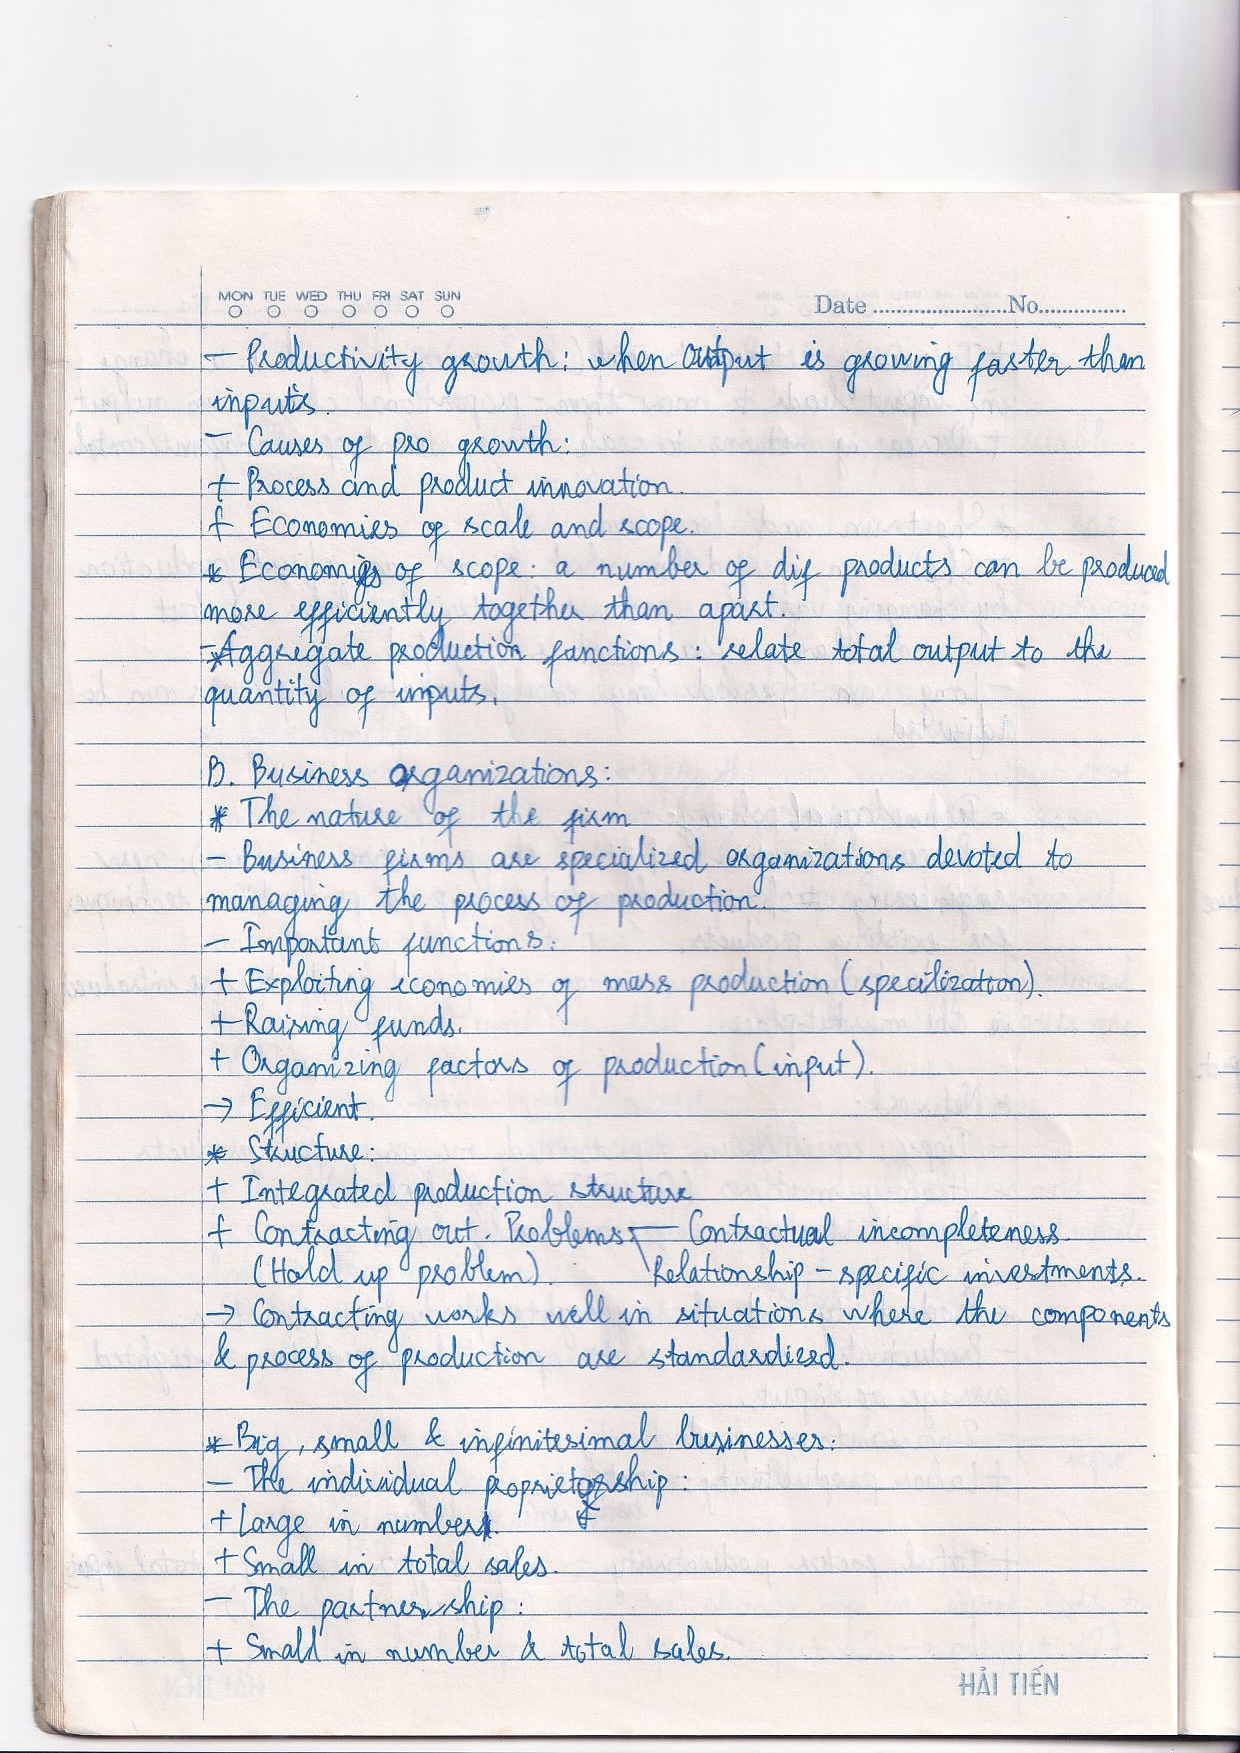 MON TUE WED THU FRI SAT SUN
Date ........................No...............
- Productivity growth: when output is growing faster than
inputs.
- Causes of pro growth:
+ Process and product innovation.
+ Economies of scale and scope.
* Economies of scope: a number of dif products can be produced
more efficiently together than apart.
* Aggregate production functions: relate total output to the
quantity of inputs.
B. Business organizations:
* The nature of the firm
- Business firms are specialized organizations devoted to
managing the process of production.
- Important functions:
+ Exploiting economies of mass production (specilization).
+ Raising funds.
+ Organizing factors of production (input).
→ Efficient.
* Structure:
+ Integrated production structure
+ Contracting out. Problems - Contractual incompleteness
(Hold up problem). \ Relationship - specific investments.
→ Contracting works well in situations where the components
& process of production are standardizeed.
* Big, small & infinitesimal businesses:
- The individual proprietorship:
+ Large in number.
+ Small in total sales.
- The partnership:
+ Small in number & total sales.
HẢI TIẾN